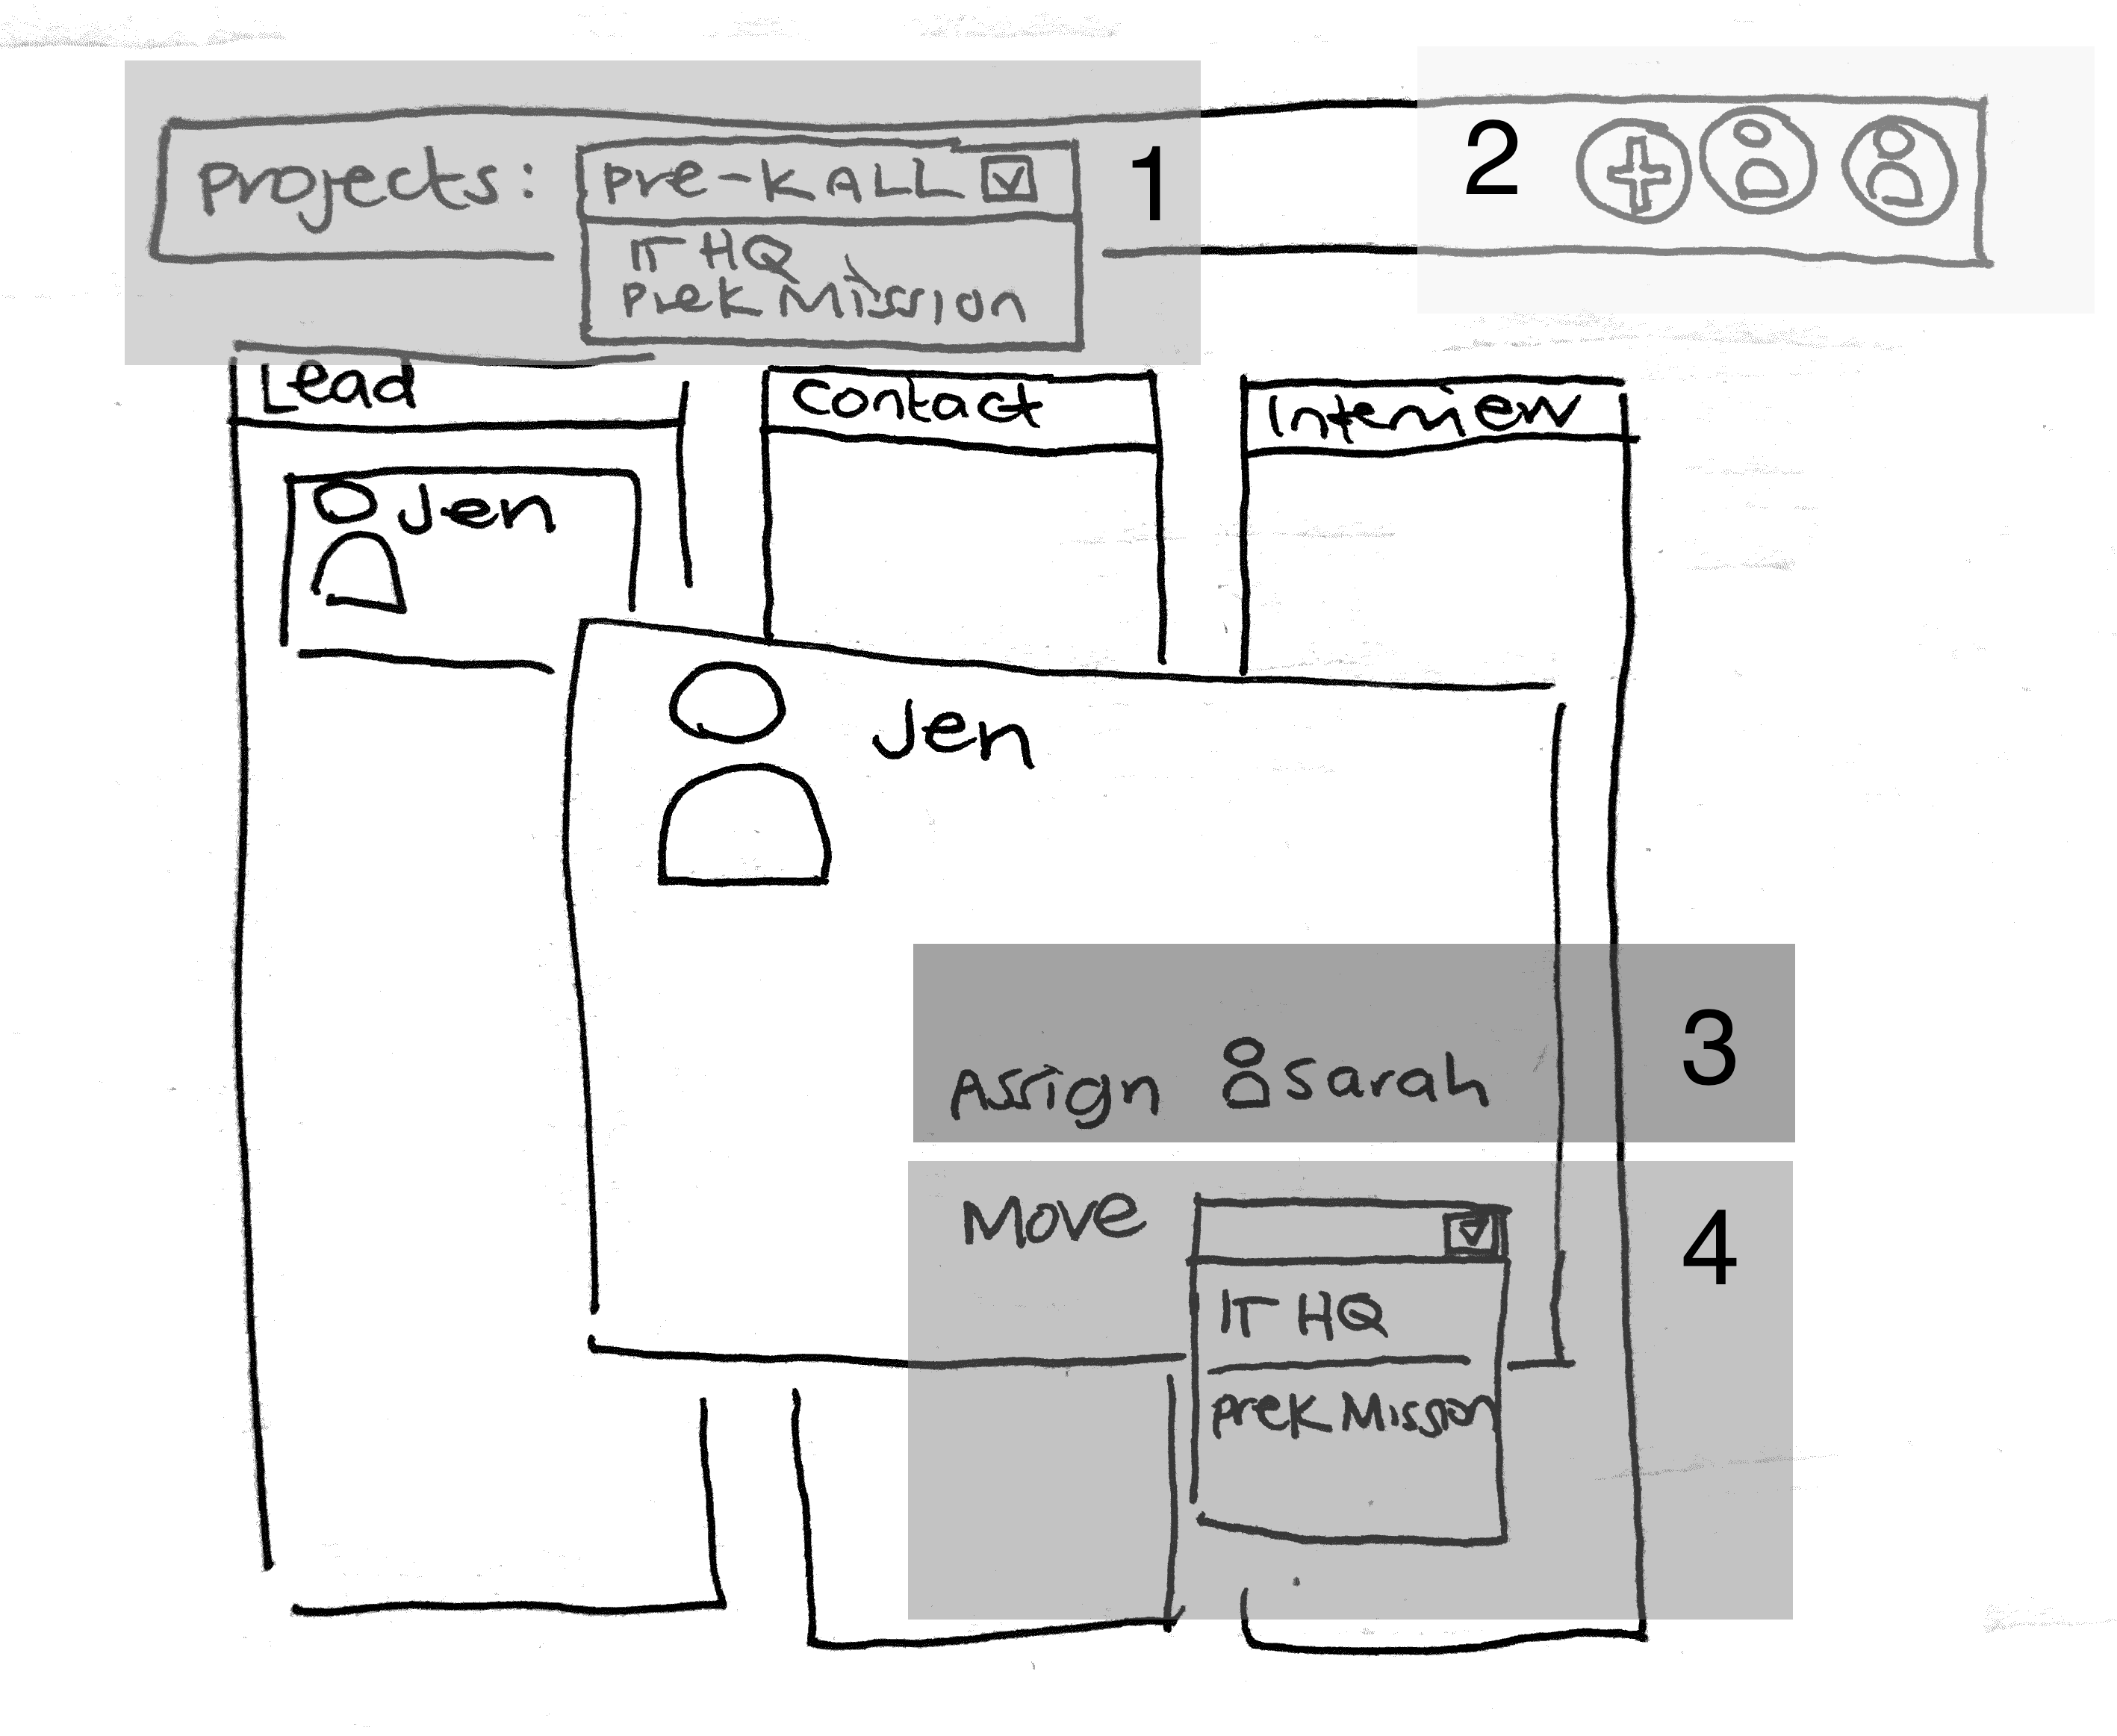 Projects: Pre-K ALL 1
2
IT HQ
PreK Mission
Lead Contact Interview
Jen
Jen
3
Assign Sarah
Move 4
IT HQ
PreK Mission